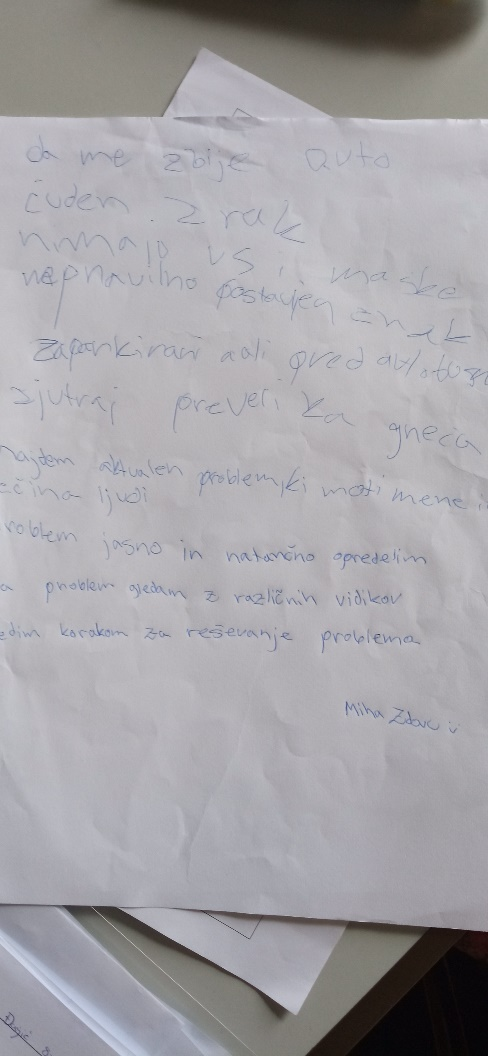 da me zbije avto
čuden zrak
nimajo vsi maske
nepravilno postavljen znak
zaparkirani avti pred avtobusn
zjutraj preveli ka gneča
najdem aktualen problem, ki moti mene i
ečina ljudi
roblem jasno in natančno opredelim
a problem gledam z različnih vidikov
edim korakom za reševanje problema
Miha